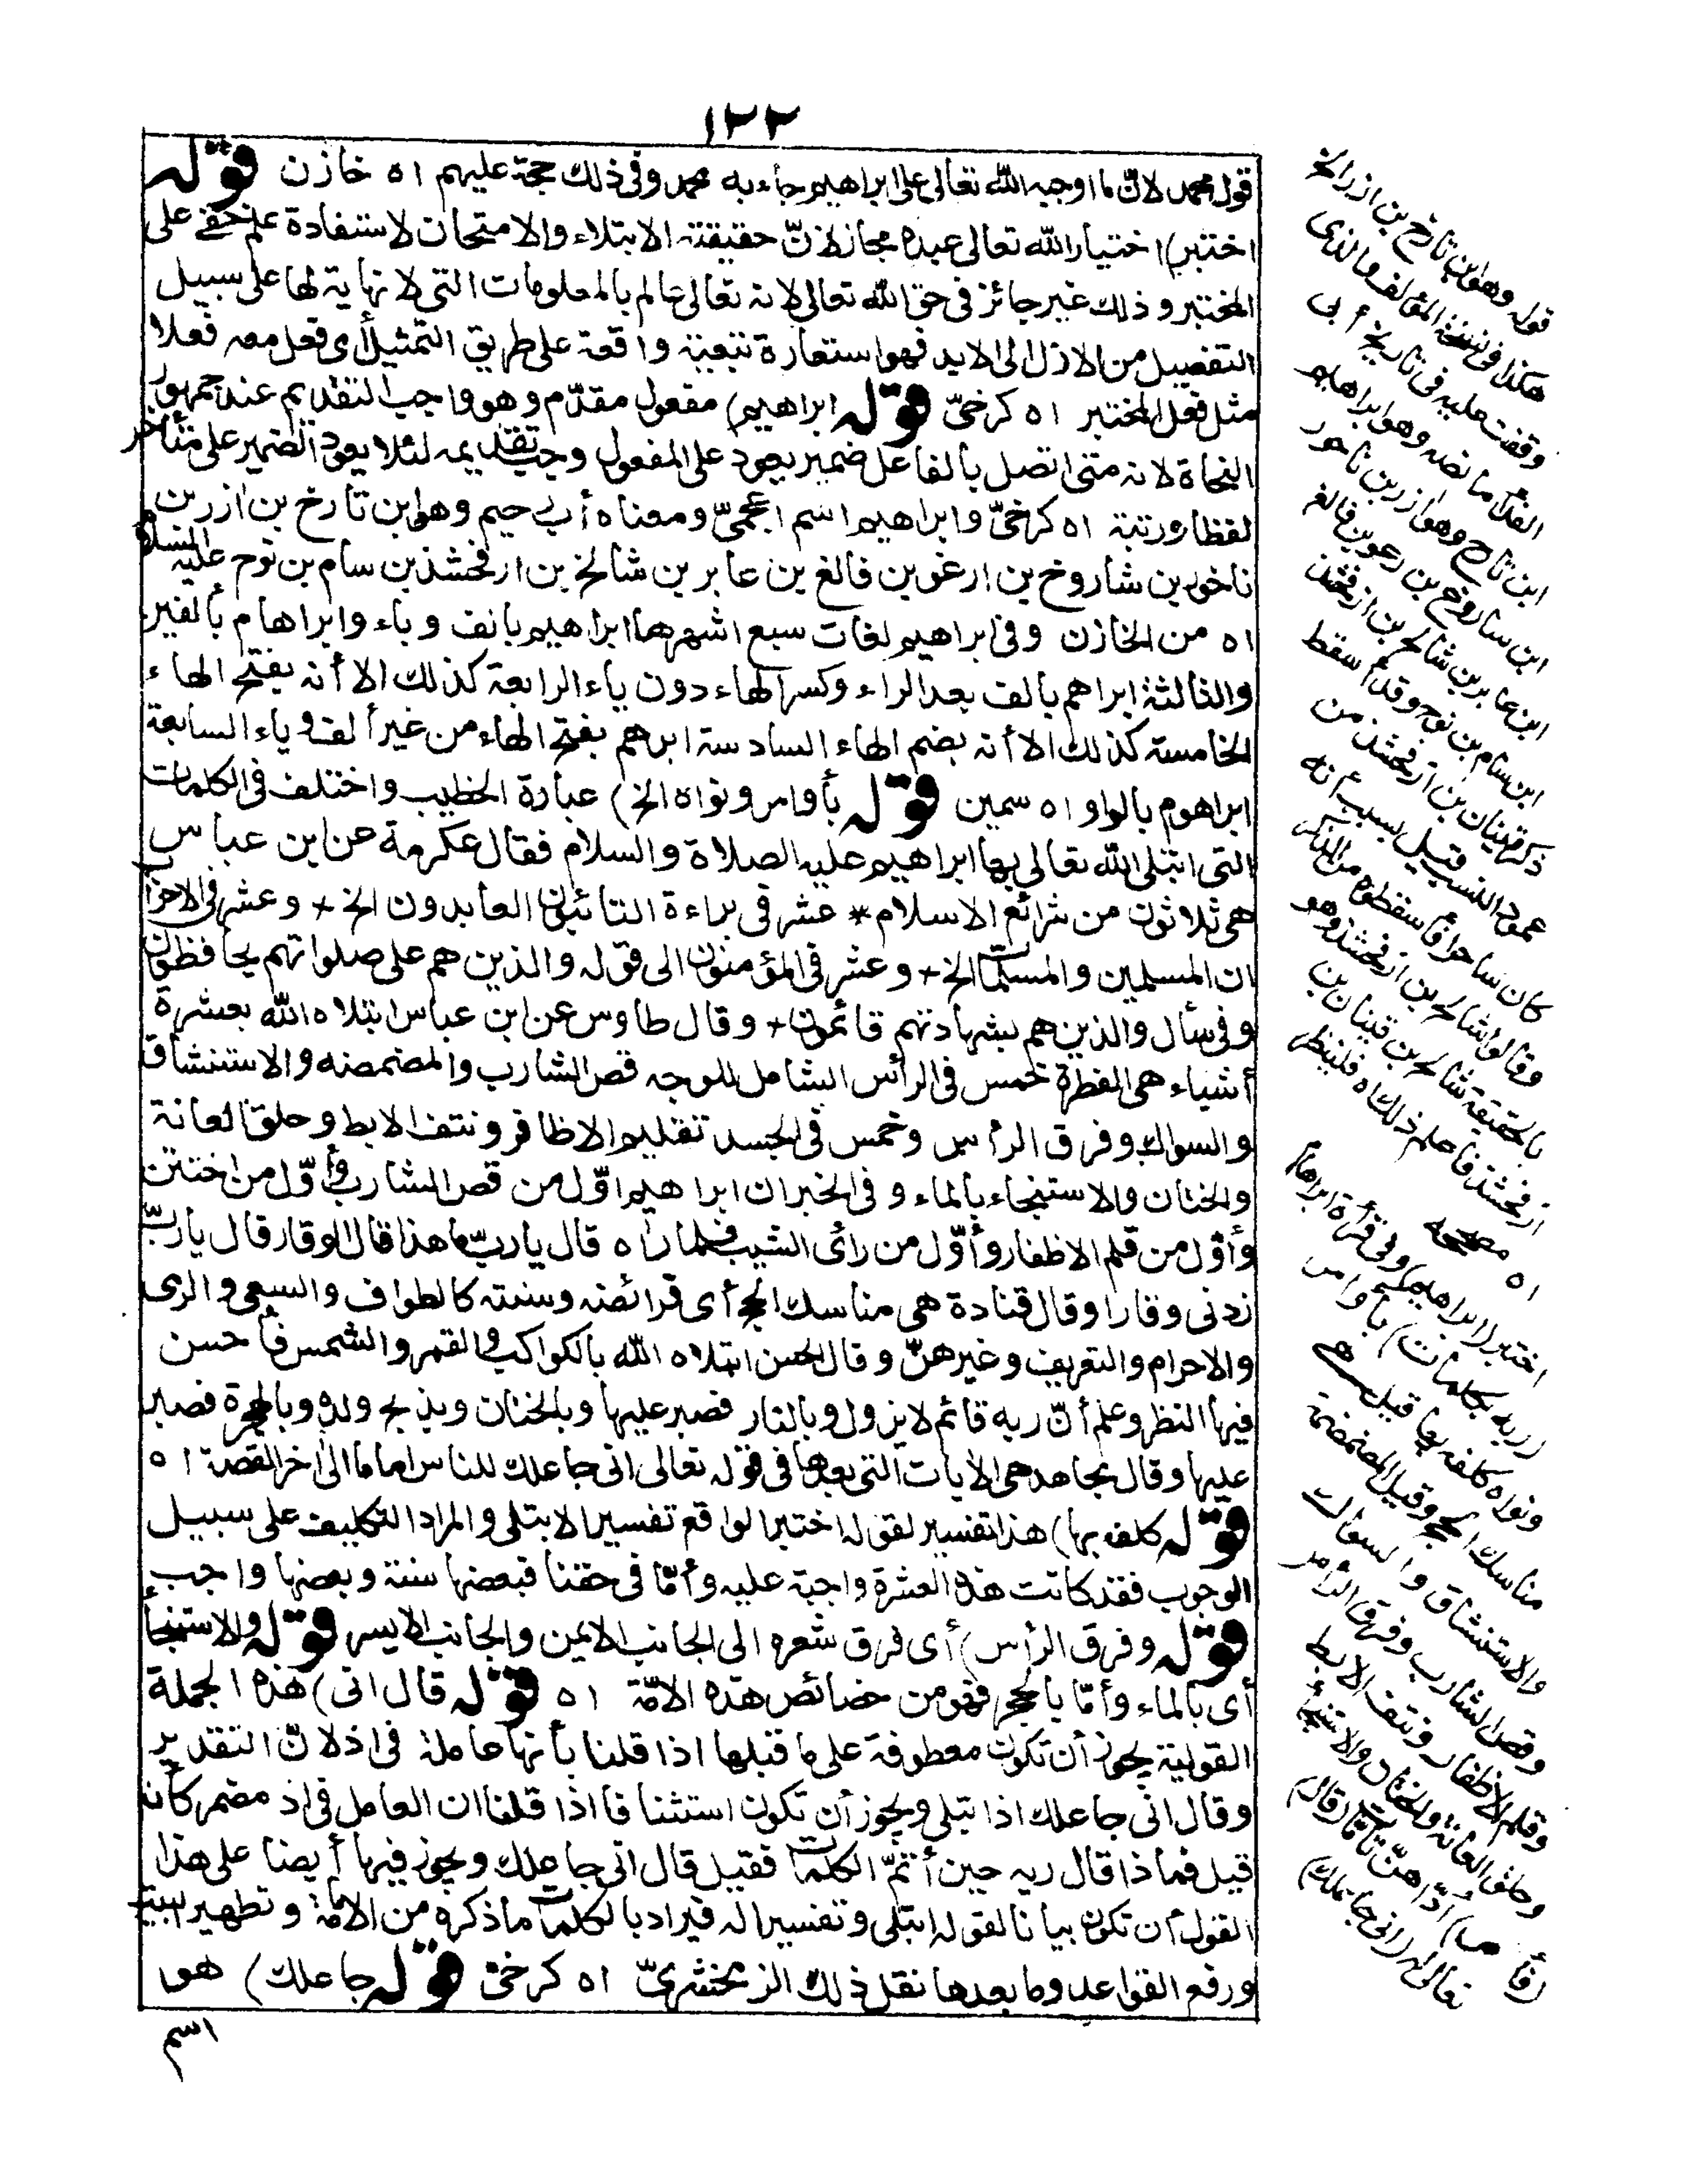 ١٢٢
قول محمد لانّ ما اوجبه الله تعالى على ابراهيم جاء به محمد وفى ذلك حجة عليهم اه خازن قوله
اختبر) اختبار الله تعالى عبده مجاز لانّ حقيقته الابتلاء والامتحان لاستفادة علم خفى على
المختبر وذلك غير جائز فى حق الله تعالى لانه تعالى عالم بالمعلومات التى لا نهاية لها على سبيل
التفصيل من الازل الى الابد فهو استعارة تبعية واقعة على طريق التمثيل أى فعل معه فعلا
مثل فعل المختبر اه كرخىّ قوله ابراهيم) مفعول مقدّم وهو واجب التقديم عند جمهور
النحاة لانه متى اتصل بالفاعل ضمير يعود على المفعول وجب تقديمه لئلا يعود الضمير على متأخر
لفظا ورتبة اه كرخىّ وابراهيم اسم اعجمىّ ومعناه أب رحيم وهو ابن تارخ بن ازر بن
ناخور بن شاروخ بن ارغو بن فالغ بن عابر بن شالخ بن ارفخشذ بن سام بن نوح عليه السلام
اه من الخازن وفى ابراهيم لغات سبع اشهرها ابراهيم بالف وياء وابراهام بألفين
والثالثة ابراهم بالف بعد الراء وكسر الهاء دون ياء الرابعة كذلك الا أنه بفتح الهاء
الخامسة كذلك الا أنه بضم الهاء السادسة ابرهم بفتح الهاء من غير ألف وياء السابعة
ابراهوم بالواو اه سمين قوله بأوامر ونواه الخ) عبارة الخطيب واختلف فى الكلمات
التى ابتلى الله تعالى بها ابراهيم عليه الصلاة والسلام فقال عكرمة عن ابن عباس
هى ثلاثون من شرائع الاسلام * عشر فى براءة التائبون العابدون الخ + وعشر فى الاحزاب
ان المسلمين والمسلمات الخ + وعشر فى المؤمنون الى قوله والذين هم على صلواتهم يحافظون
وفى سأل والذين هم بشهادتهم قائمون + وقال طاوس عن ابن عباس ابتلاه الله بعشرة
أشياء هى الفطرة خمس فى الرأس الشامل للوجه قص الشارب والمضمضه والاستنشاق
والسواك وفرق الرأس وخمس فى الجسد تقليم الاظافر ونتف الابط وحلق العانة
والختان والاستنجاء بالماء وفى الخبر ان ابراهيم اوّل من قص الشارب وأوّل من اختتن
وأوّل من قلم الاظفار وأوّل من رأى الشيب فلما راه قال يا ربّ ما هذا قال الوقار قال يا ربّ
زدنى وقارا وقال قتادة هى مناسك الحج أى فرائضه وسننه كالطواف والسعى والرمى
والاحرام والتعريف وغيرهنّ وقال الحسن ابتلاه الله بالكواكب والقمر والشمس فأحسن
فيها النظر وعلم أنّ ربه قائم لا يزول وبالنار فصبر عليها وبالختان وبذبح ولده وبالهجرة فصبر
عليها وقال مجاهد هى الآيات التى بعدها فى قوله تعالى انى جاعلك للناس اماما الى اخر القصة اه
قوله كلفه بها) هذا تفسير لقوله اختبر الواقع تفسيرا لابتلى والمراد التكليف على سبيل
الوجوب فقد كانت هذه العشرة واجبة عليه وأمّا فى حقنا فبعضها سنة وبعضها واجب
قوله وفرق الرأس) أى فرق شعره الى الجانب الايمن والجانب الايسر قوله والاستنجاء
أى بالماء وأمّا بالحجر فهو من خصائص هذه الامّة اه قوله قال انى) هذه الجملة
القولية يجوز أن تكون معطوفة على ما قبلها اذا قلنا بأنها عاملة فى اذ لانّ التقدير
وقال انى جاعلك اذ ابتلى ويجوز أن تكون استئنافا اذا قلنا ان العامل فى اذ مضمر كأنه
قيل فماذا قال ربه حين أتمّ الكلمات فقيل قال انى جاعلك ويجوز فيها أيضا على هذا
القول أن تكون بيانا لقوله ابتلى وتفسيرا له فيراد بالكلمات ما ذكره من الامامة وتطهير البيت
ورفع القواعد وما بعدها نقل ذلك الزمخشرىّ اه كرخى قوله جاعلك) هو
اسم
قوله وهو ابن تارخ بن ازر الخ
هكذا فى نسخة المؤلف والذى
وقفت عليه فى تاريخ أبى
الفدا ما نصه وهو ابراهيم
ابن تارح وهو ازر بن ناحور
ابن ساروغ بن رعو بن فالغ
ابن عابر بن شالح بن ارفخشذ
ابن سام بن نوح وقد أسقط
ذكر قينان بن ارفخشذ من
عمود النسب قيل بسبب أنه
كان ساحرا فأسقطوه من الذكر
وقالوا شالح بن ارفخشذ وهو
بالحقيقة شالح بن قينان بن
ارفخشذ فاعلم ذلك اه فلينظر
اه مصححه
اختبر (ابراهيم) وفى قرأة ابراهام
(ربه بكلمات) بأوامر
ونواه كلفه بها قيل هى
مناسك الحج وقيل المضمضة
والاستنشاق والسواك
وقص الشارب وفرق الرأس
وقلم الاظفار ونتف الابط
وحلق العانة والختان والاستنجاء
(فأتمهن) أدّاهنّ تامّات (قال)
تعالى له (انى جاعلك)